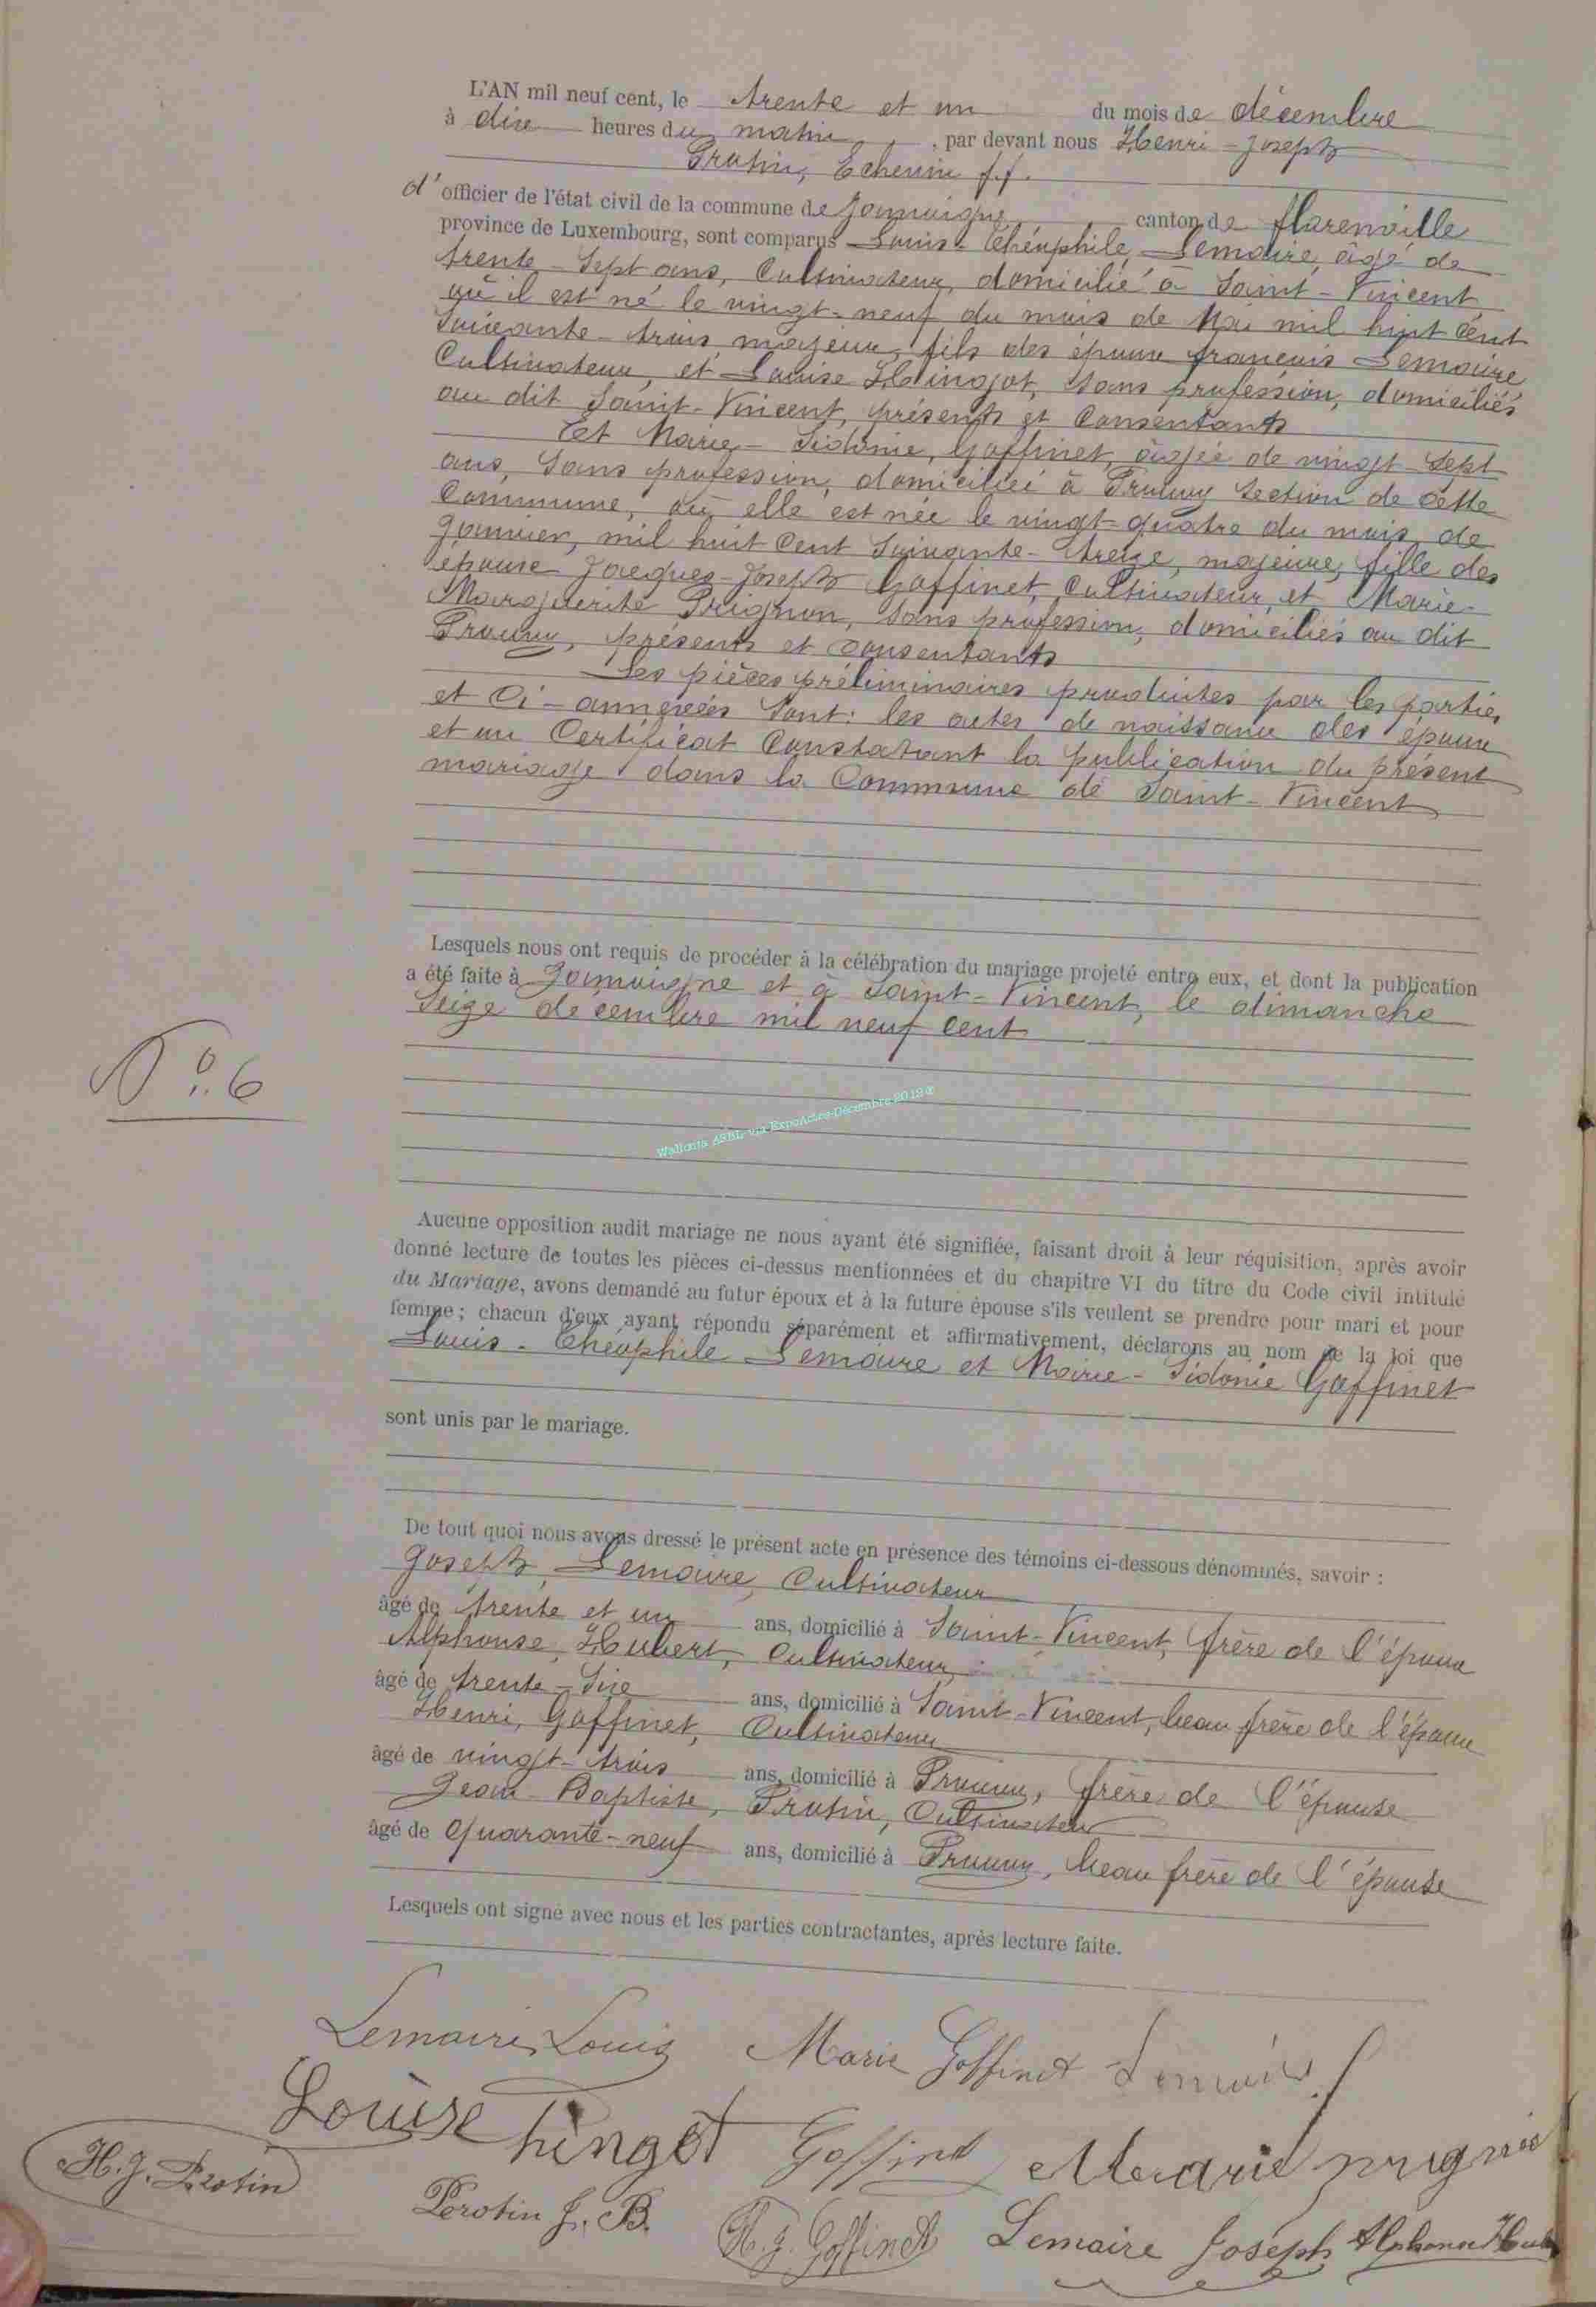 L'AN mil neuf cent, le trente et un du mois de décembre
à dix heures du matin, par devant nous Henri-Joseph
Protin, Echevin f.f.
d'officier de l'état civil de la commune de Jamoigne canton de Florenville
province de Luxembourg, sont comparus Louis-Théophile Lemaire, âgé de
trente-sept ans, Cultivateur, domicilié à Saint-Vincent
où il est né le vingt-neuf du mois de Mai mil huit cent
soixante-trois, majeur, fils des époux francois Lemaire
Cultivateur, et Louise Hingot, sans profession, domiciliés
au dit Saint-Vincent, présents et Consentants
Et Marie-Sidonie, Goffinet, âgée de vingt-sept
ans, sans profession, domiciliée à Prouvy section de cette
Commune, où elle est née le vingt-quatre du mois de
Janvier, mil huit cent soixante-treize, majeure, fille des
époux Jacques-Joseph Goffinet, Cultivateur, et Marie-
Marguerite Prignon, sans profession, domiciliés au dit
Prouvy, présents et consentants
Les pièces préliminaires produites par les parties
et ci-annexées sont: les actes de naissance des époux
et un Certificat Constatant la publication du présent
mariage dans la Commune de Saint-Vincent
Lesquels nous ont requis de procéder à la célébration du mariage projeté entre eux, et dont la publication
a été faite à Jamoigne et à Saint-Vincent, le dimanche
seize décembre mil neuf cent
N°. 6
Wallonia ASBL via ExpoActes-Décembre 2012
Aucune opposition audit mariage ne nous ayant été signifiée, faisant droit à leur réquisition, après avoir
donné lecture de toutes les pièces ci-dessus mentionnées et du chapitre VI du titre du Code civil intitulé
du Mariage, avons demandé au futur époux et à la future épouse s'ils veulent se prendre pour mari et pour
femme; chacun d'eux ayant répondu séparément et affirmativement, déclarons au nom de la loi que
Louis-Théophile Lemaire et Marie-Sidonie Goffinet
sont unis par le mariage.
De tout quoi nous avons dressé le présent acte en présence des témoins ci-dessous dénommés, savoir :
Joseph, Lemaire, Cultivateur
âgé de trente et un ans, domicilié à Saint-Vincent, frère de l'époux
Alphonse, Hubert, Cultivateur,
âgé de trente-six ans, domicilié à Saint-Vincent, beau frère de l'époux
Henri, Goffinet, Cultivateur
âgé de vingt-trois ans, domicilié à Prouvy, frère de l'épouse
Jean-Baptiste, Protin, Cultivateur
âgé de quarante-neuf ans, domicilié à Prouvy, beau frère de l'épouse
Lesquels ont signé avec nous et les parties contractantes, après lecture faite.
Lemaire Louis Marie Goffinet Lemaire f
Louise hingot Goffinet Marie prignon
H. J. Protin Perotin J. B. H. J. Goffinet Lemaire Joseph Alphonse Hubert